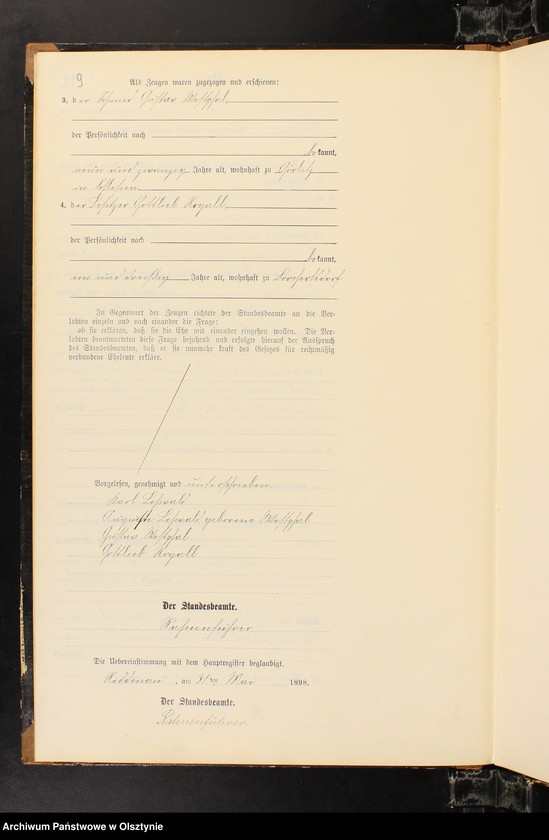 9
Als Zeugen waren zugezogen und erschienen:
3. der Gustav Westphal
der Persönlichkeit nach
bekannt,
neun und zwanzig Jahre alt, wohnhaft zu Görlitz
in Schlesien
4. der Besitzer Gottlieb Royall
der Persönlichkeit nach
bekannt,
ein und dreißig Jahre alt, wohnhaft zu Borchertsdorf
In Gegenwart der Zeugen richtete der Standesbeamte an die Ver-
lobten einzeln und nach einander die Frage:
ob sie erklären, daß sie die Ehe mit einander eingehen wollen. Die Ver-
lobten beantworteten diese Frage bejahend und erfolgte hierauf der Ausspruch
des Standesbeamten, daß er sie nunmehr kraft des Gesetzes für rechtmäßig
verbundene Eheleute erkläre.
Vorgelesen, genehmigt und unterschrieben
Karl Lehwald
Auguste Lehwald geborene Westphal
Gustav Westphal
Gottlieb Royall
Der Standesbeamte.
Rahmenführer
Die Uebereinstimmung mit dem Hauptregister beglaubigt.
am 31ten Mai 1898.
Der Standesbeamte.
Rahmenführer
Archiwum Państwowe w Olsztynie